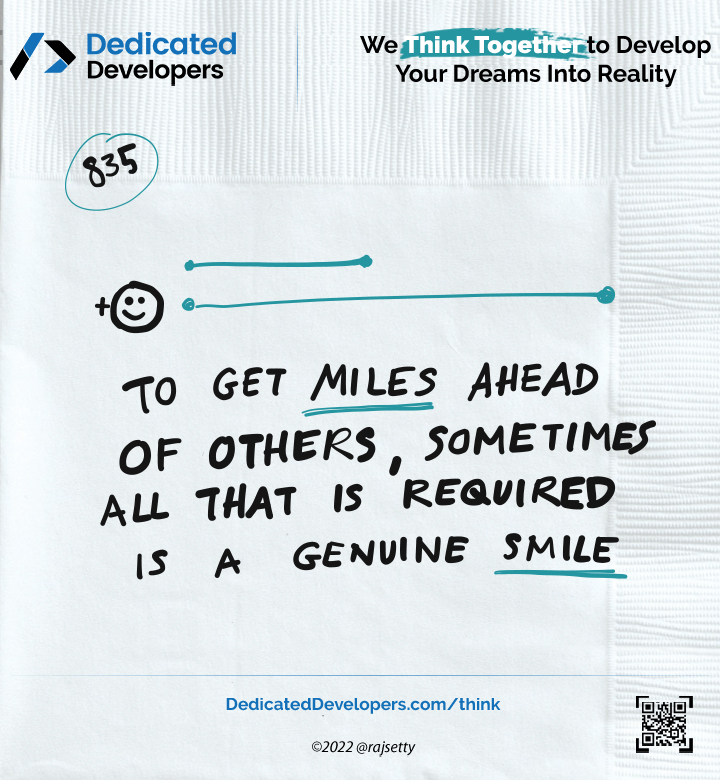 Dedicated
Developers
We Think Together to Develop
Your Dreams Into Reality
835
+
TO GET MILES AHEAD
OF OTHERS, SOMETIMES
ALL THAT IS REQUIRED
IS A GENUINE SMILE
DedicatedDevelopers.com/think
©2022 @rajsetty